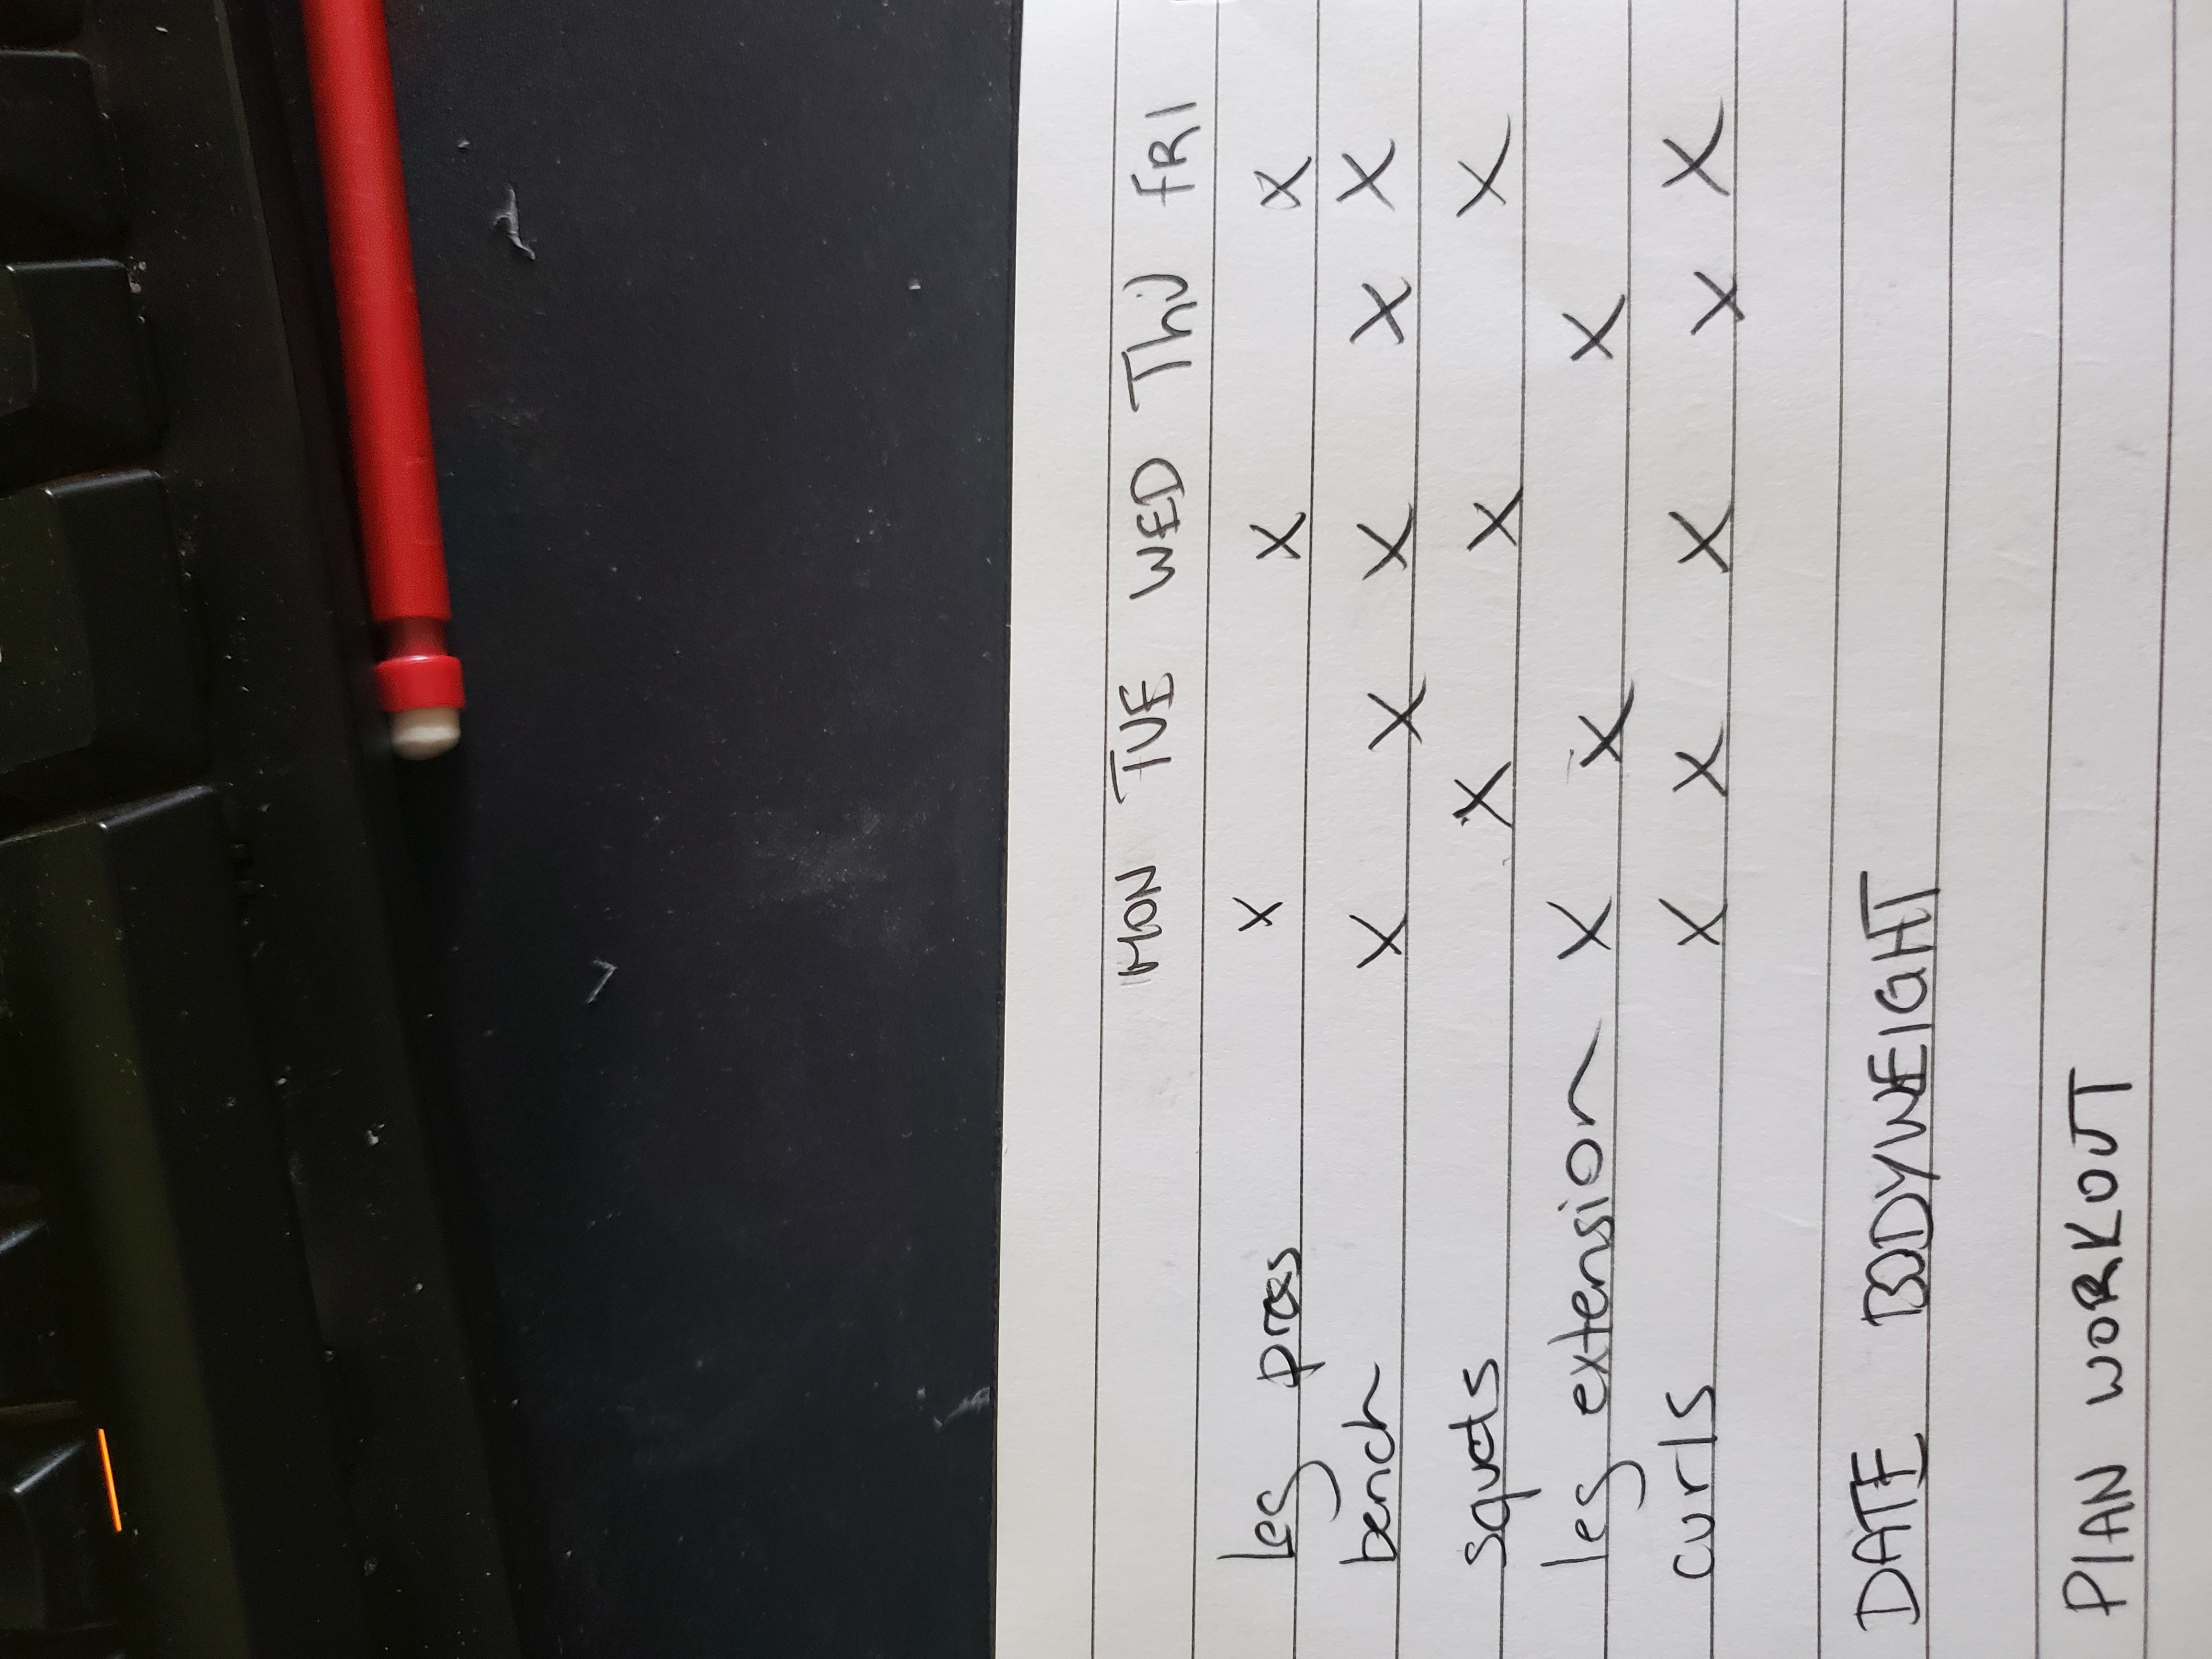 MON TUE WED ThU FRI
leg press X X X
bench X X X X X
squats X X X
leg extension X X X
curls X X X X X
DATE BODYWEIGHT
PlAN WORKOUT